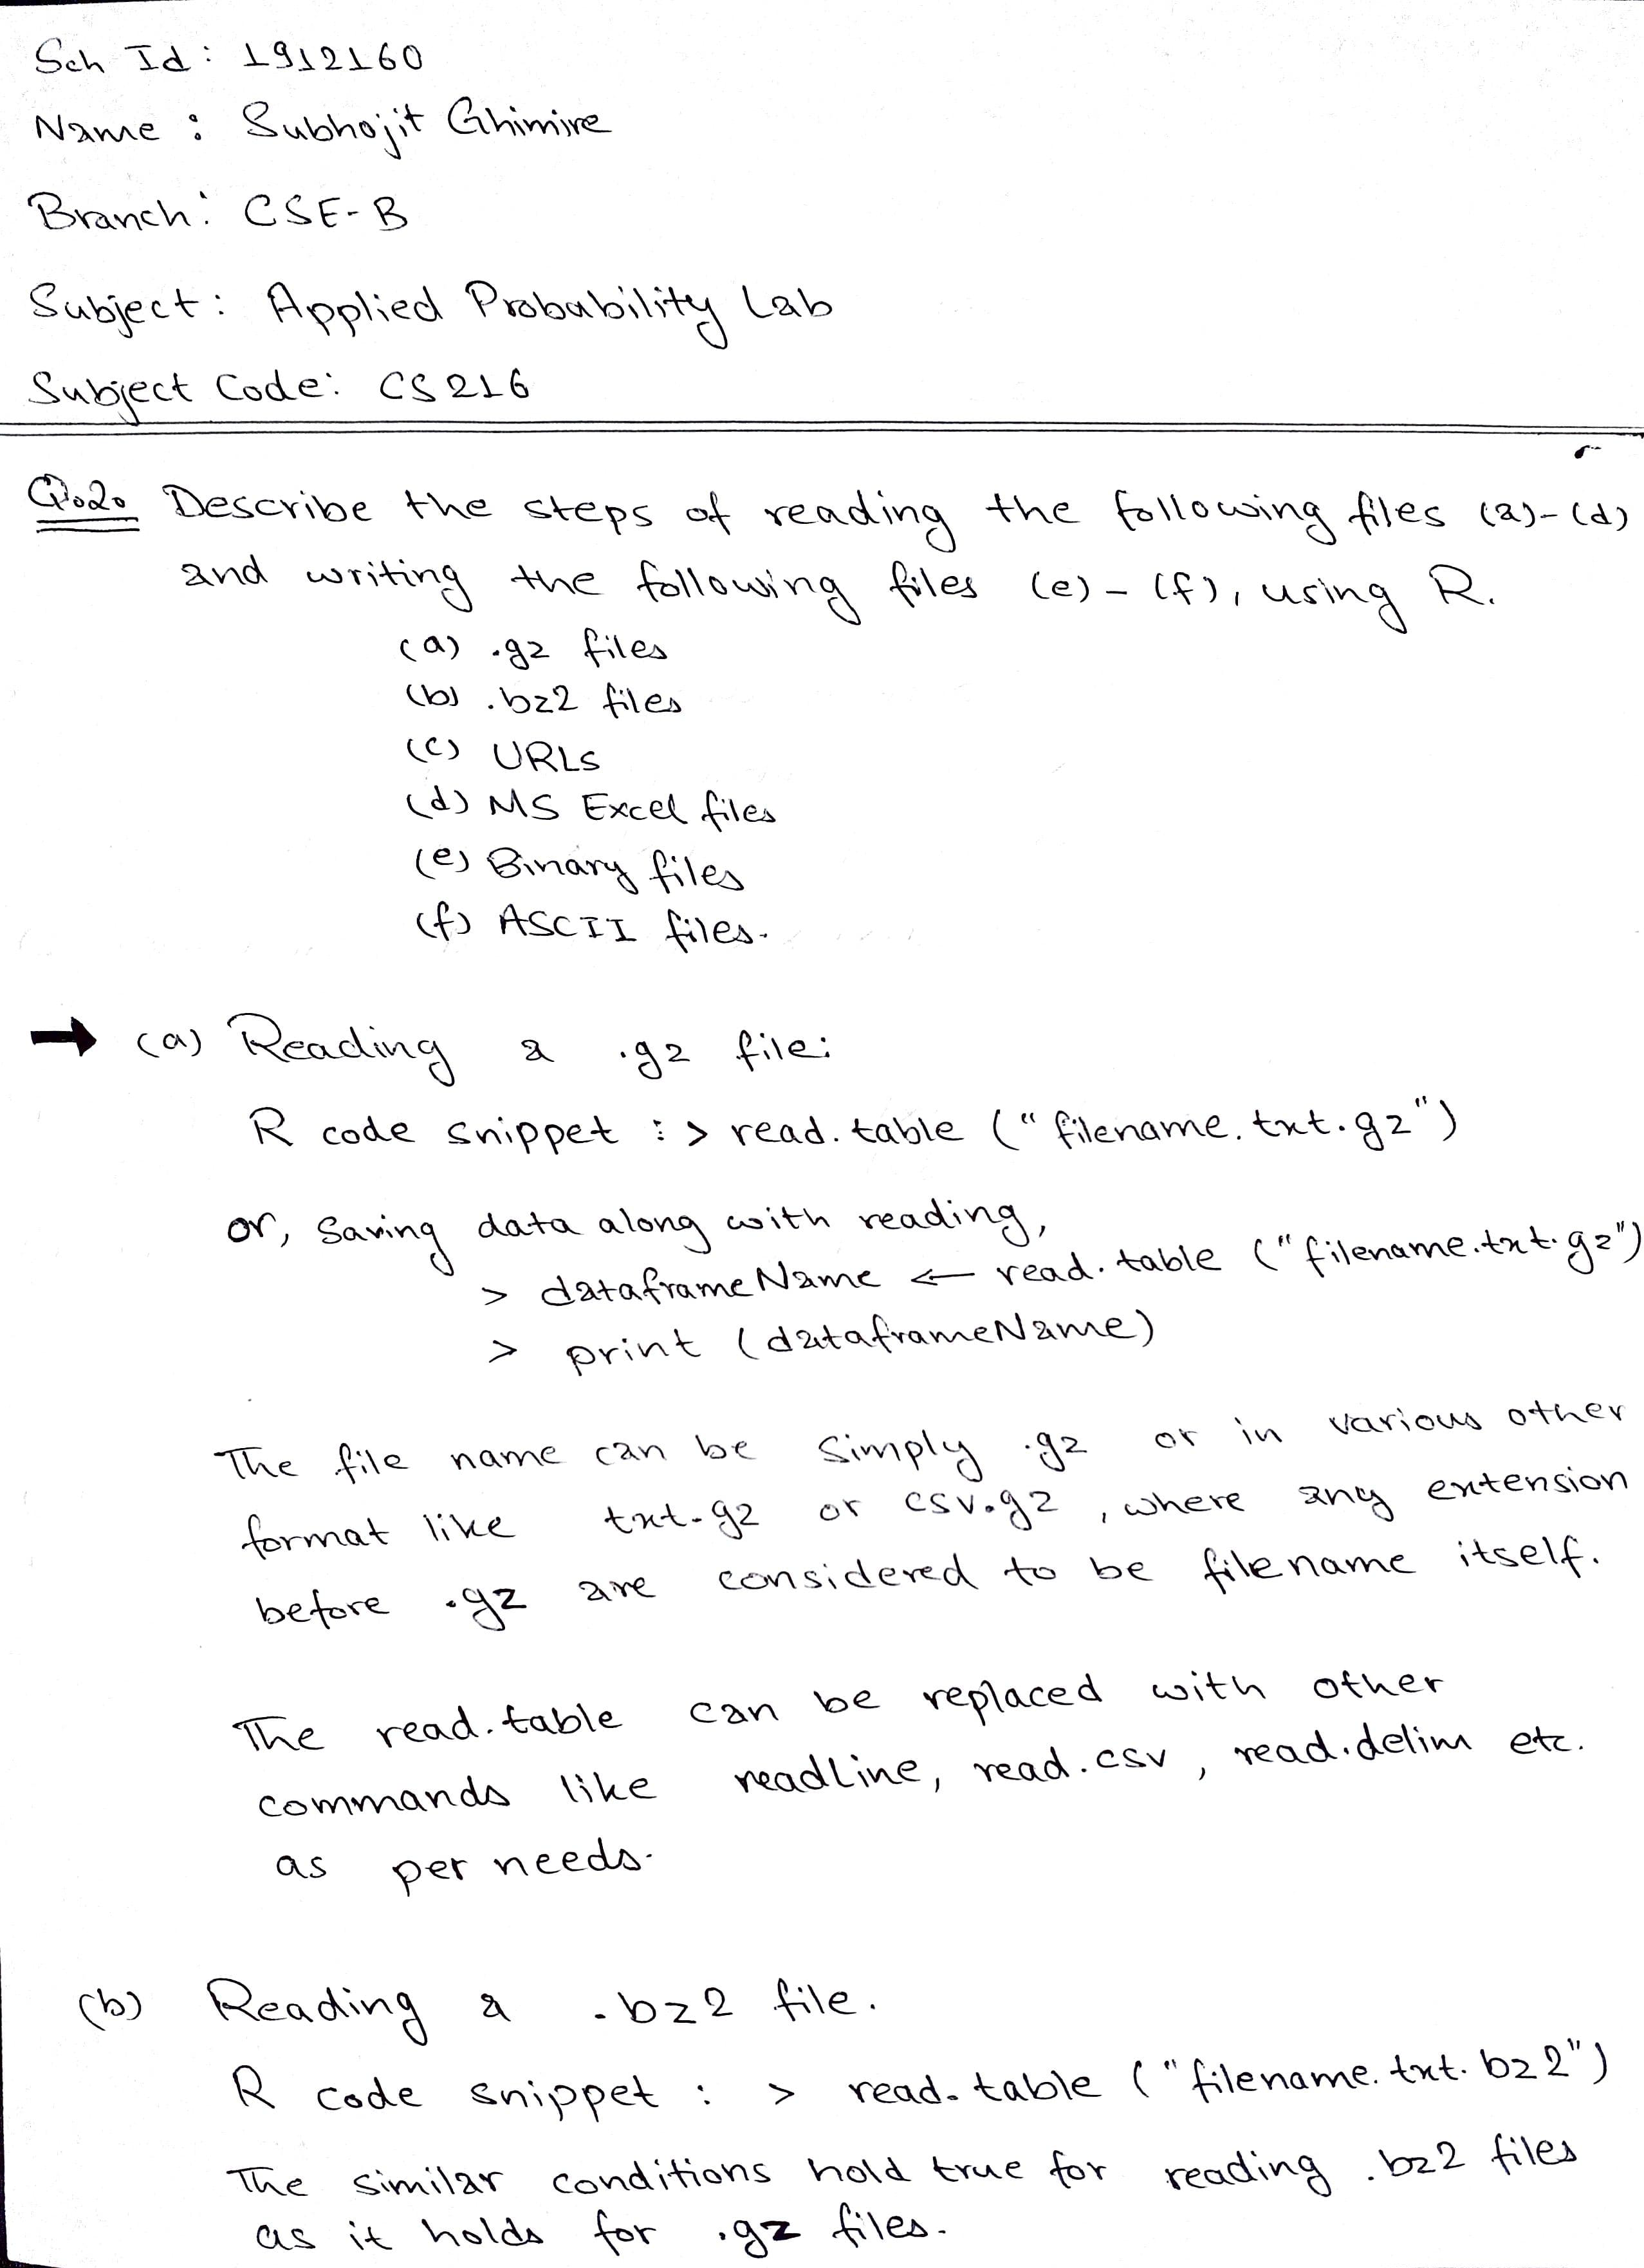 Sch Id: 1912160
Name : Subhojit Ghimire
Branch: CSE-B
Subject: Applied Probability Lab
Subject Code: CS216
Q.2. Describe the steps of reading the following files (a)-(d)
and writing the following files (e) - (f), using R.
(a) .gz files
(b) .bz2 files
(c) URLs
(d) MS Excel files
(e) Binary files
(f) ASCII files.
→ (a) Reading a .gz file:
R code snippet : > read.table ("filename.txt.gz")
or, Saving data along with reading,
> dataframeName ← read.table ("filename.txt.gz")
> print (dataframeName)
The file name can be simply .gz or in various other
format like txt.gz or csv.gz, where any extension
before .gz are considered to be filename itself.
The read.table can be replaced with other
commands like readLine, read.csv, read.delim etc.
as per needs.
(b) Reading a .bz2 file.
R code snippet : > read.table ("filename.txt.bz2")
The similar conditions hold true for reading .bz2 files
as it holds for .gz files.